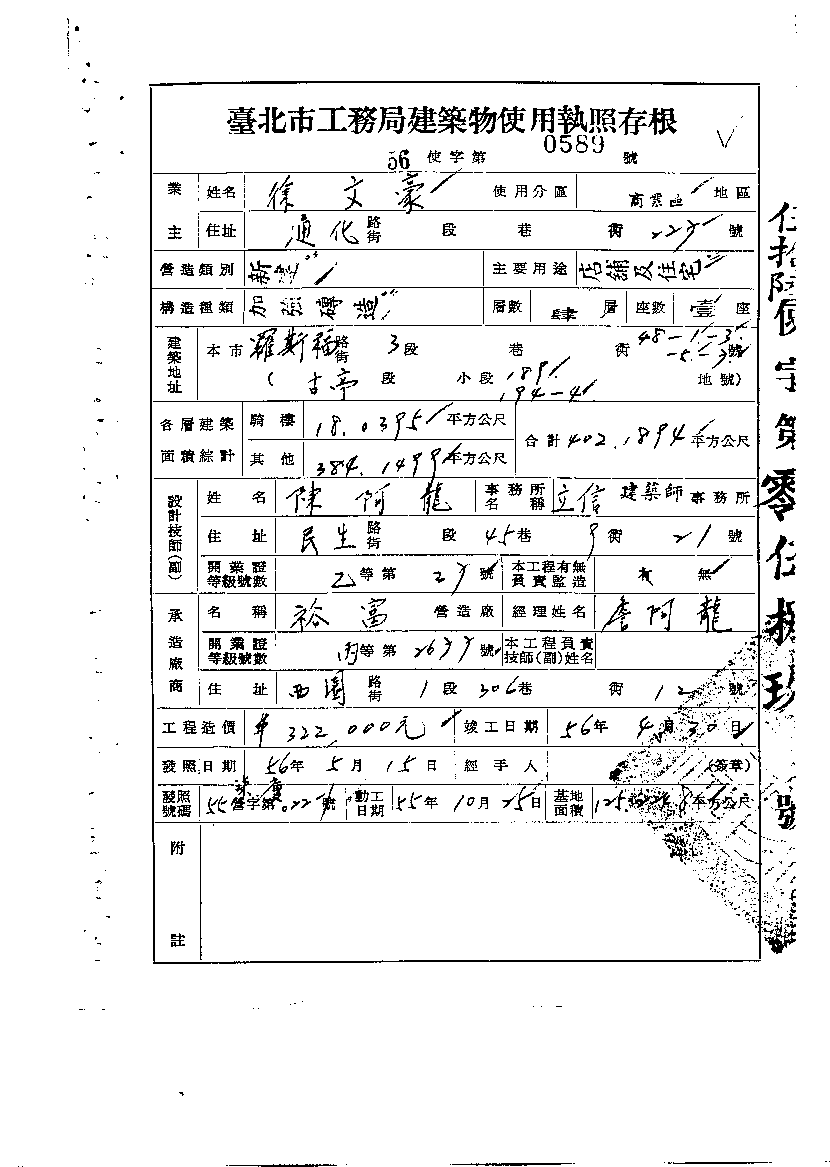 臺北市工務局建築物使用執照存根
56 使字第 0589 號
業主 姓名 徐文豪 使用分區 商業區 地區
住址 通化 路街 段 巷 衖 號
營造類別 新建 主要用途 店鋪及住宅
構造種類 加強磚造 層數 肆層 座數 壹座
建築地址 本市 羅斯福 路街 3段 巷 衖 48-1-3 -5-3號
(古亭段 小段 189 194-4 地號)
各層建築面積綜計 騎樓 18.0395平方公尺 合計402.1894平方公尺
其他 384.1499平方公尺
設計技師(副) 姓名 陳阿龍 事務所名稱 立信 建築師 事務所
住址 民生 路街 段 45巷 衖 21號
開業證等級號數 乙等第 號 本工程有無負責監造 有 無
承造廠商 名稱 裕富 營造廠 經理姓名 詹阿龍
開業證等級號數 丙等第 號 本工程負責技師(副)姓名
住址 西園 路街 1段 306巷 衖 12號
工程造價 322,000元 竣工日期 56年 4月 30日
發照日期 56年 5月 15日 經手人 (簽章)
發照號碼 55 營字第 號 動工日期 55年 10月 25日 基地面積 平方公尺
附註
伍拾陸使字第零伍捌玖號